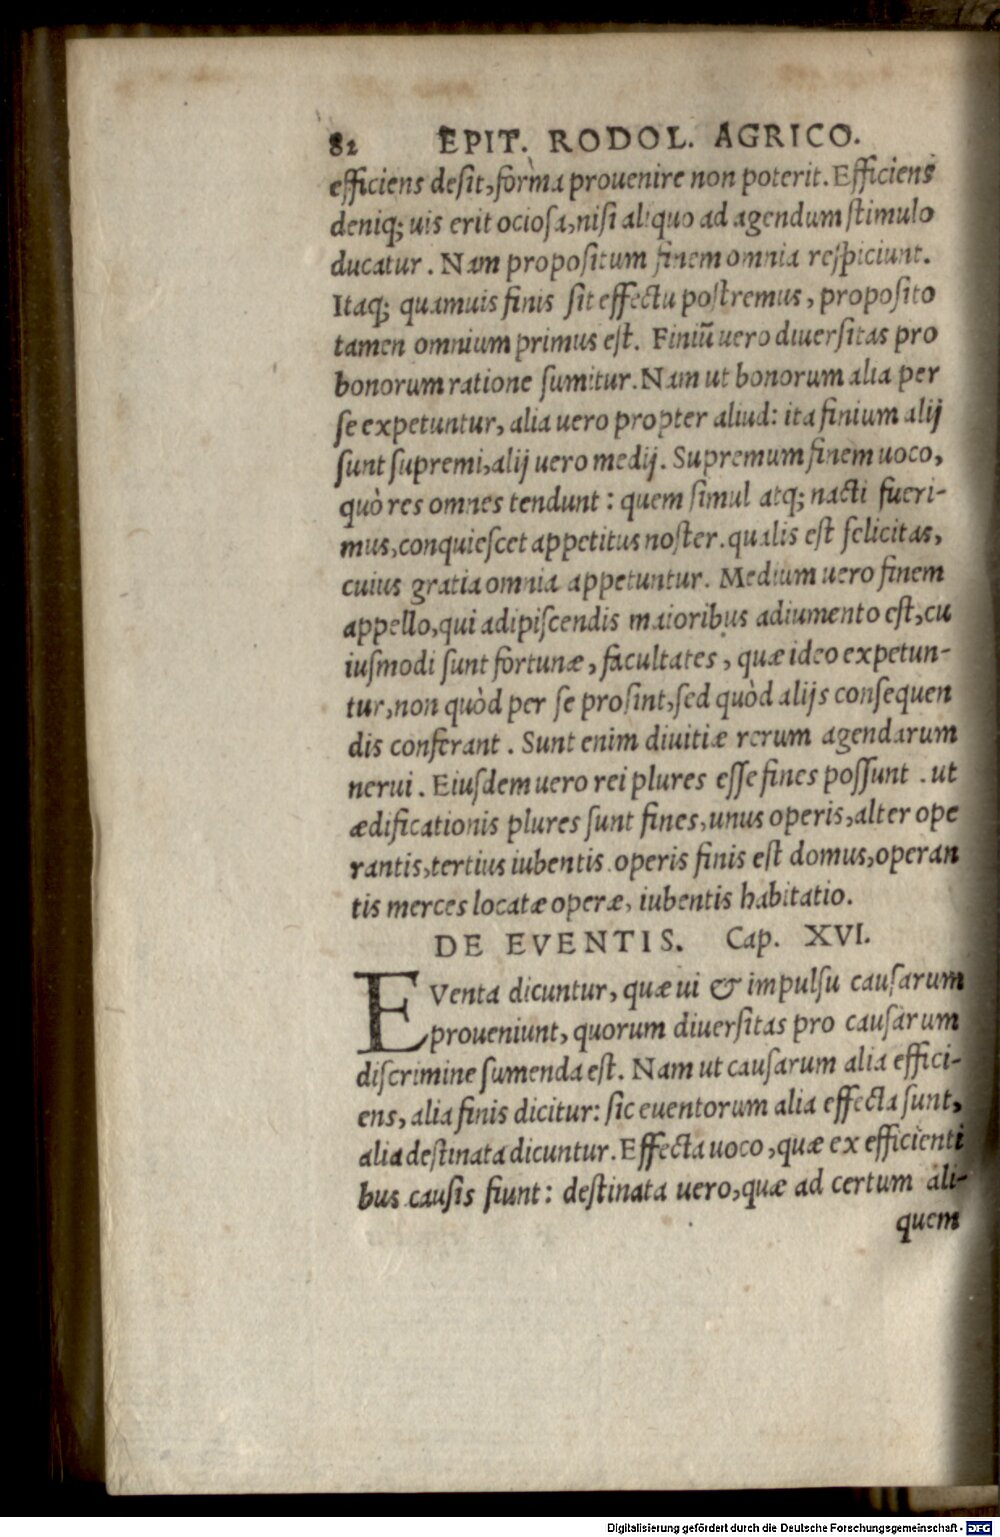 82 EPIT. RODOL. AGRICO.
efficiens desit, forma prouenire non poterit. Efficiens
deniq; uis erit ociosa, nisi aliquo ad agendum stimulo
ducatur. Nam propositum finem omnia respiciunt.
Itaq; quamuis finis sit effectu postremus, proposito
tamen omnium primus est. Finiũ uero diuersitas pro
bonorum ratione sumitur. Nam ut bonorum alia per
se expetuntur, alia uero propter aliud: ita finium alij
sunt supremi, alij uero medij. Supremum finem uoco,
quò res omnes tendunt: quem simul atq; nacti fueri-
mus, conquiescet appetitus noster. qualis est felicitas,
cuius gratia omnia appetuntur. Medium uero finem
appello, qui adipiscendis maioribus adiumento est, cu
iusmodi sunt fortunæ, facultates, quæ ideo expetun-
tur, non quòd per se prosint, sed quòd alijs consequen
dis conferant. Sunt enim diuitiæ rerum agendarum
nerui. Eiusdem uero rei plures esse fines possunt. ut
ædificationis plures sunt fines, unus operis, alter ope
rantis, tertius iubentis. operis finis est domus, operan
tis merces locatæ operæ, iubentis habitatio.
DE EVENTIS. Cap. XVI.
EVenta dicuntur, quæ ui & impulsu causarum
proueniunt, quorum diuersitas pro causarum
discrimine sumenda est. Nam ut causarum alia effici-
ens, alia finis dicitur: sic euentorum alia effecta sunt,
alia destinata dicuntur. Effecta uoco, quæ ex efficienti
bus causis fiunt: destinata uero, quæ ad certum ali-
quem
Digitalisierung gefördert durch die Deutsche Forschungsgemeinschaft - DFG